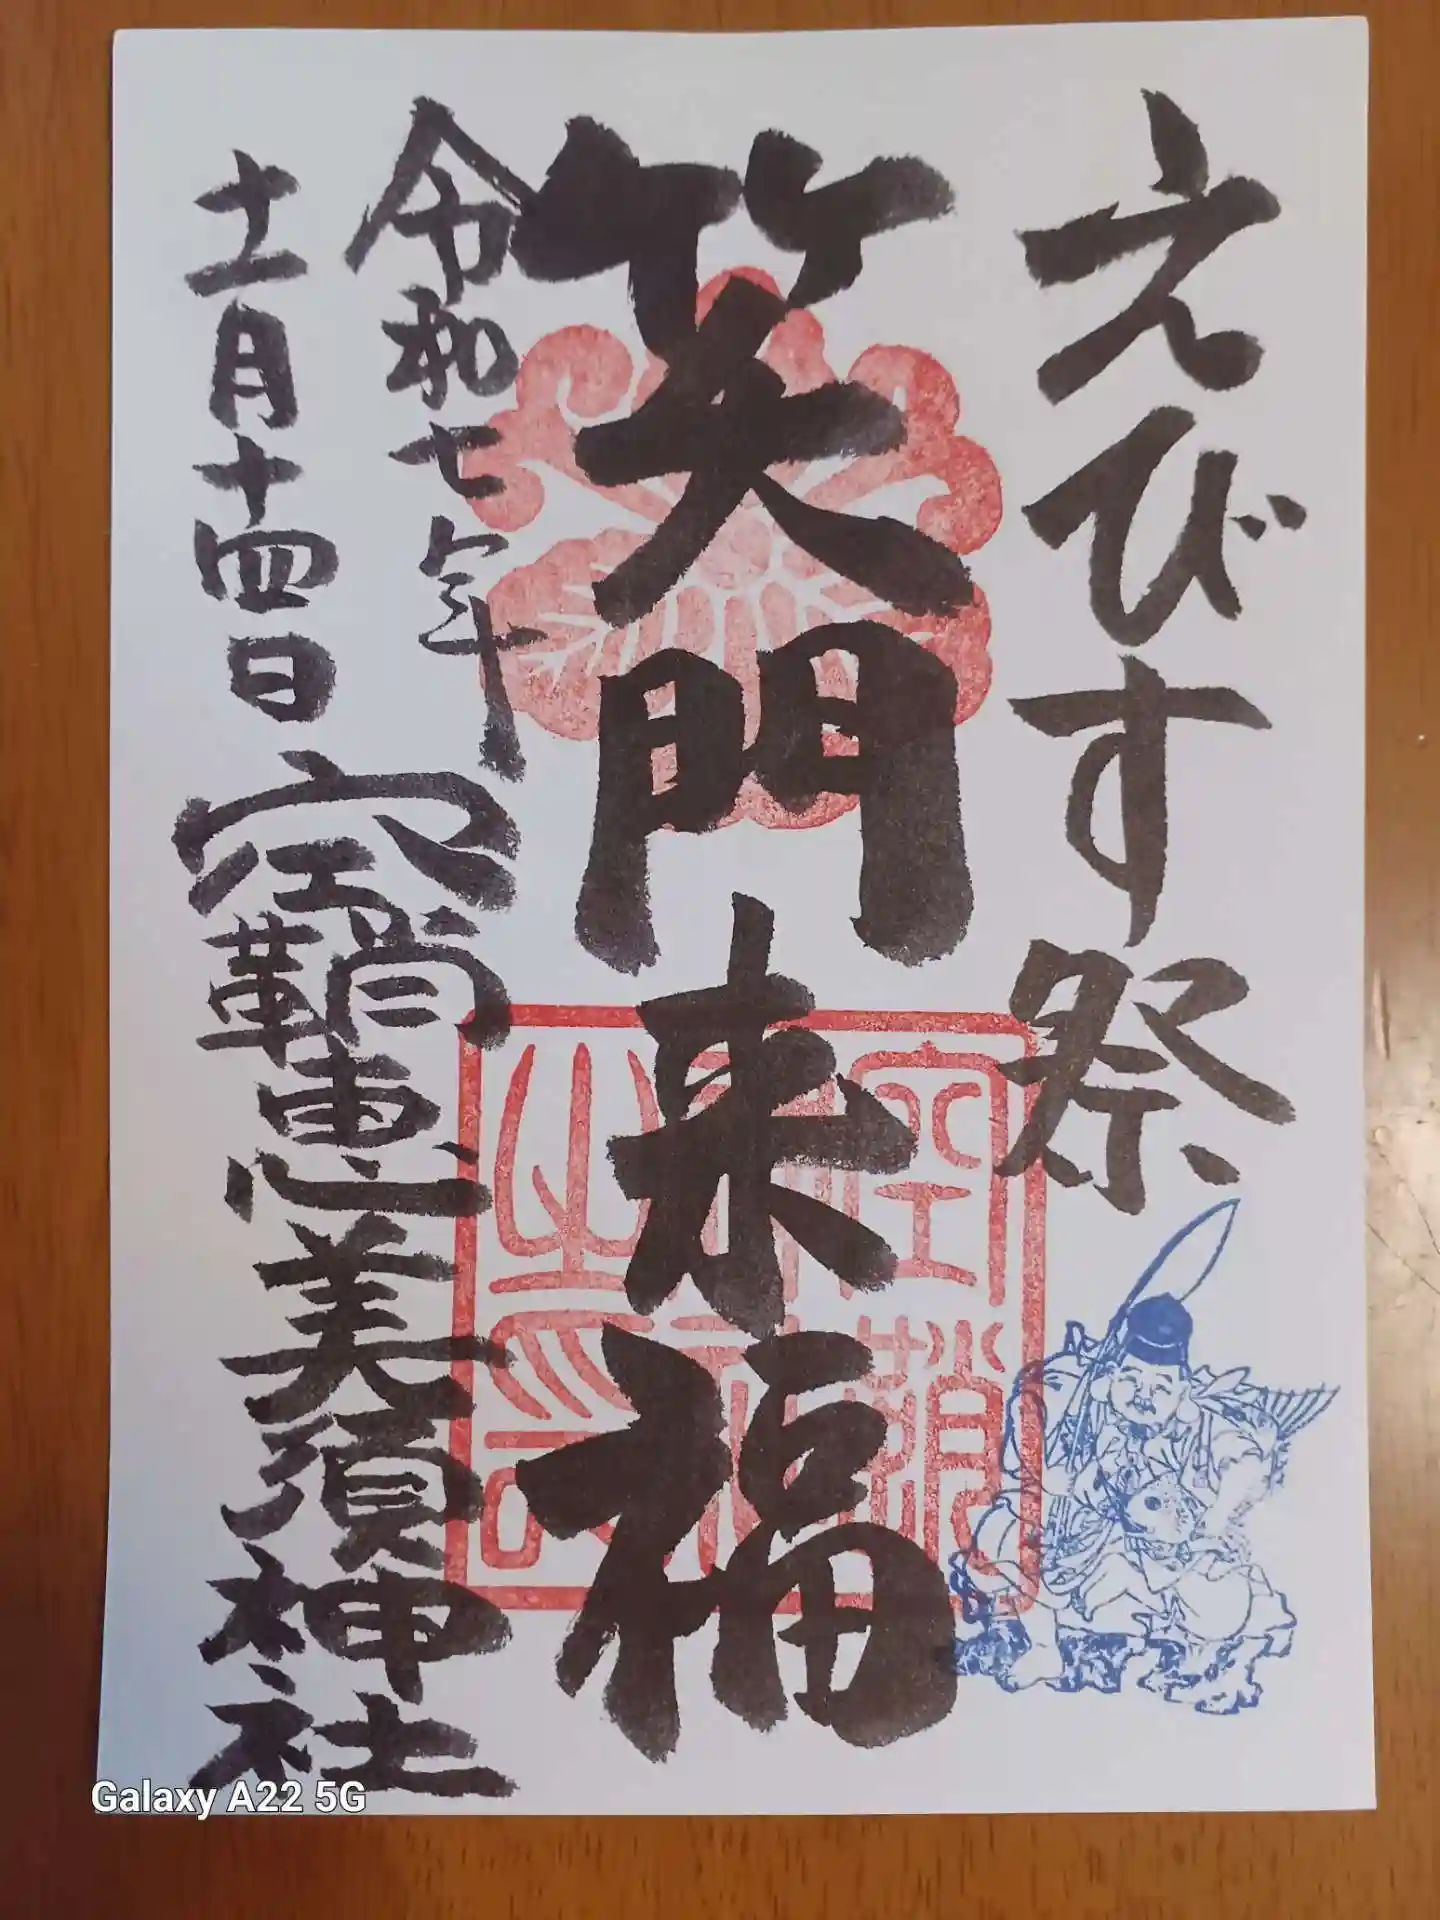 えびす祭
笑門来福
令和七年
十一月十四日
空鞘惠美須神社
空鞘
之印
Galaxy A22 5G